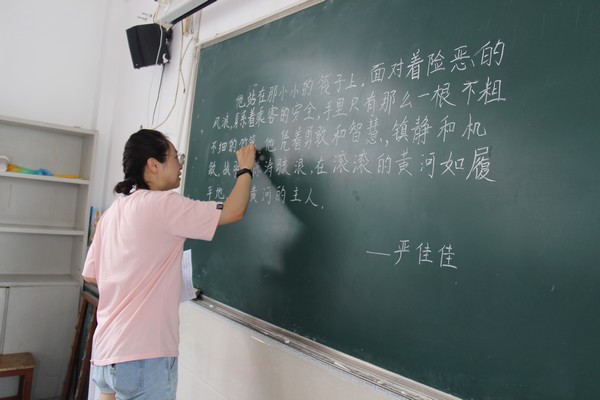 他站在那小小的筏子上,面对着险恶的
风浪,身系着乘客的安全,手里只有那么一根不粗
不细的竹篙,他凭着勇敢和智慧、镇静和机
敏,战胜 涛骇浪,在滚滚的黄河如履
平地, 黄河的主人。
—严佳佳